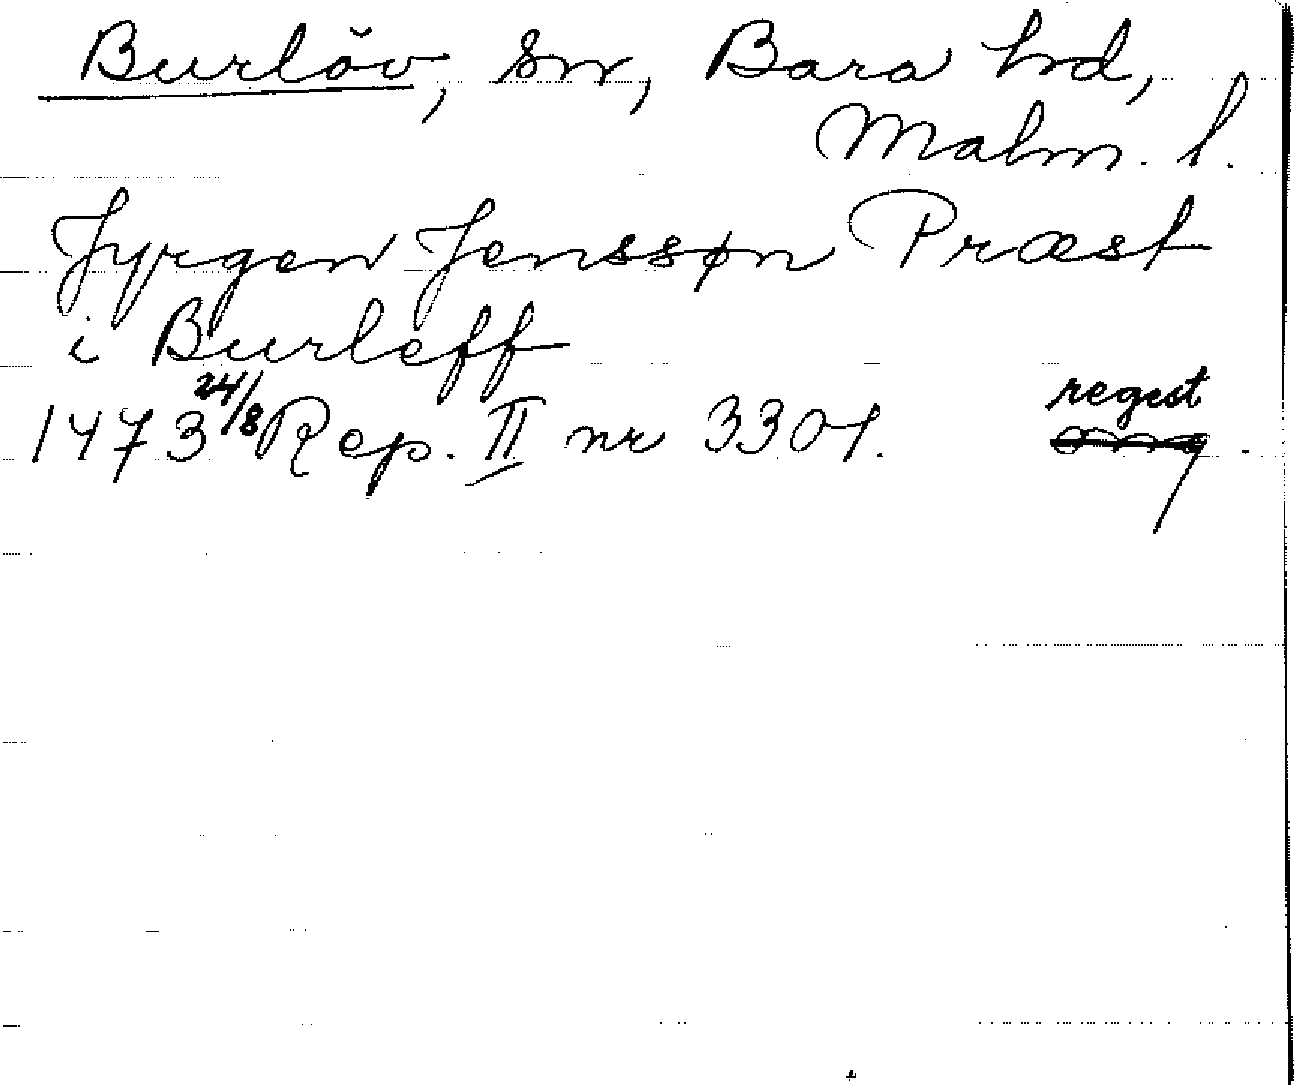 Burlöv, sn, Bara hd,
Malm. l.
Jyrgen Jenssøn Præst
i Burleff
1473 24/8 Rep. II nr 3301. regest